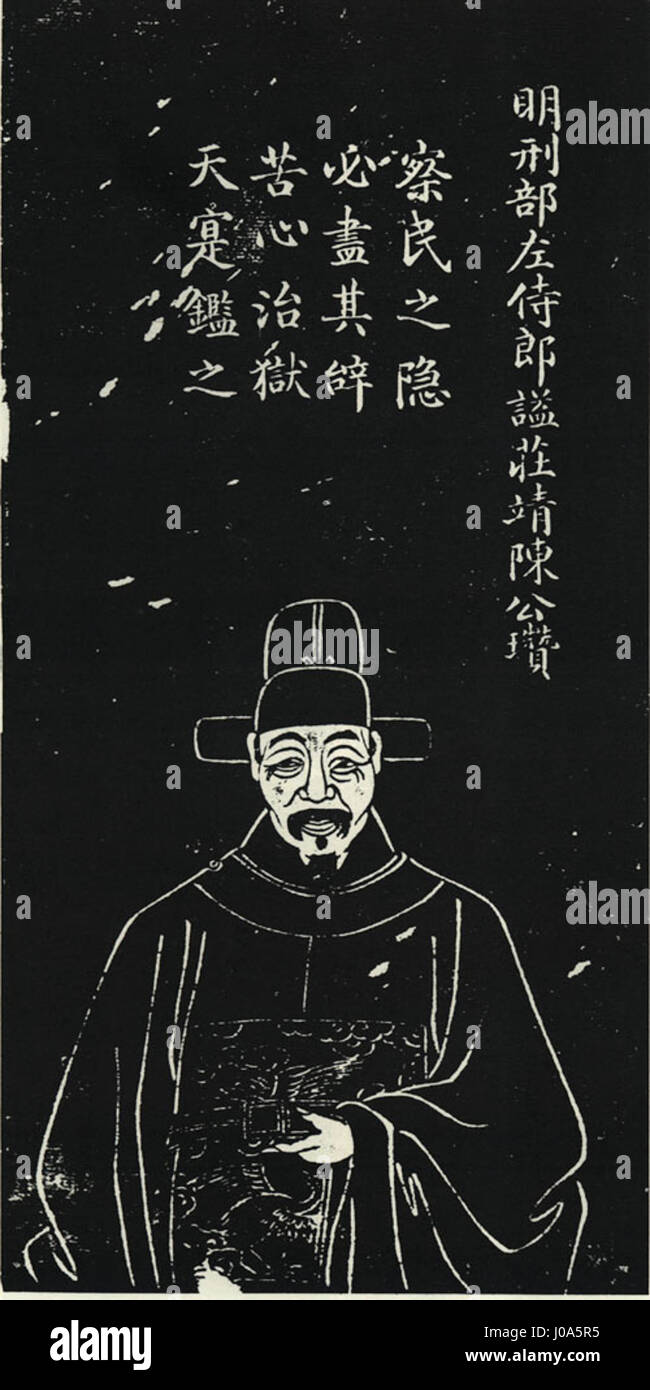 明刑部左侍郎謚莊靖陳公瓚
察民之隐
必盡其辭
苦心治獄
天寔鑑之
alamy
alamy
alamy
Image ID: J0A5R5
www.alamy.com